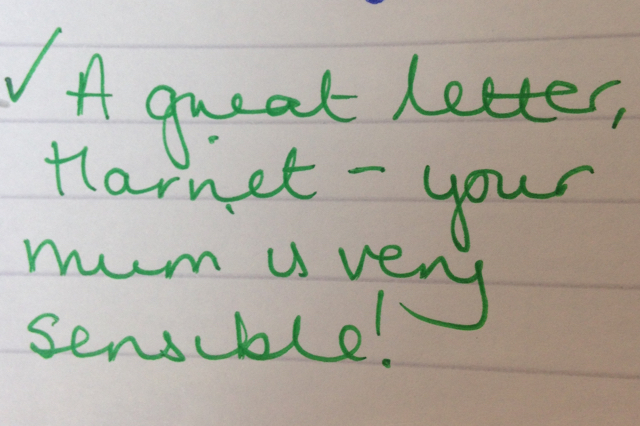 ✓ A great letter,
Harriet - your
mum is very
sensible!